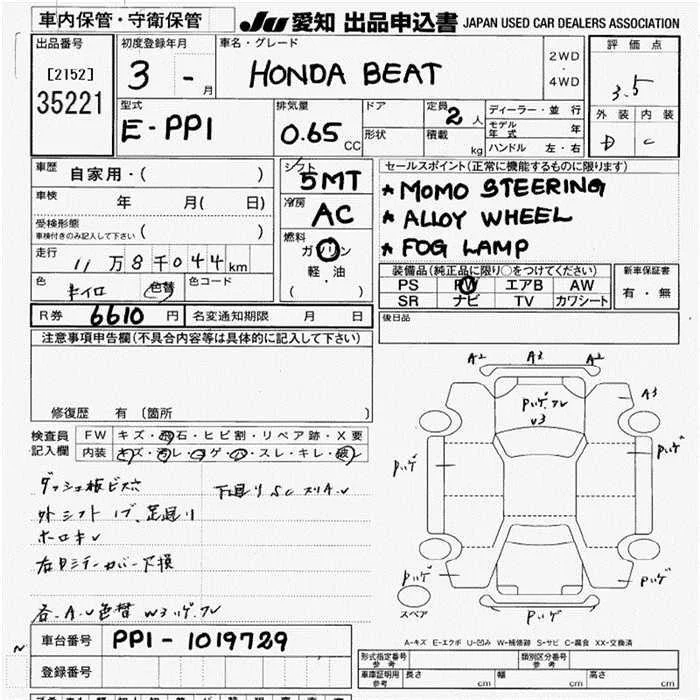 車内保管・守衛保管
JU 愛知 出品申込書 JAPAN USED CAR DEALERS ASSOCIATION
出品番号
[2152]
35221
初度登録年月
3 - 月
車名・グレード
HONDA BEAT
2WD
・
4WD
評価点
3.5
外装 内装
D C
型式
E-PP1
排気量
0.65 CC
ドア
形状
定員 2 人
積載 kg
ディーラー・並行
モデル年式 年
ハンドル 左・右
車歴 自家用・( )
車検 年 月( 日)
受検形態
車検付きのみ記入して下さい ( )
走行 11万8千044km
色 キイロ 色替 色コード
シフト
5MT
冷房
AC
燃料
ガソリン
軽・油
( ・ )
セールスポイント(正常に機能するものに限ります)
* MOMO STEERING
* ALLOY WHEEL
* FOG LAMP
装備品(純正品に限り○をつけてください)
PS PW エアB AW
SR ナビ TV カワシート
新車保証書
有・無
R券 6610 円 名変通知期限 月 日
後日品
注意事項申告欄(不具合内容等は具体的に記入して下さい)
修復歴 有 〔箇所 〕
検査員記入欄
FW キズ・飛石・ヒビ割・リペア跡・X要
内装 キズ・汚レ・コゲ・穴・スレ・キレ・破レ
ダッシュ板ビス穴
下廻り SC スリA.U
外シフトノブ、足廻り
ホロキレ
各.A.U 色替 W3 ハゲ.フレ
A2 A3 A2
A3
Pハゲ.フレ
W3
Pハゲ
Pハゲ
Pハゲ
Pハゲ
Pハゲ
スペア
A-キズ E-エクボ U-凹み W-補修跡 S-サビ C-腐食 XX-交換済
車台番号 PP1-1019729
登録番号
形式指定番号 参考
類別区分番号 参考
車庫証明用 参考 長さ cm 幅 cm 高さ cm